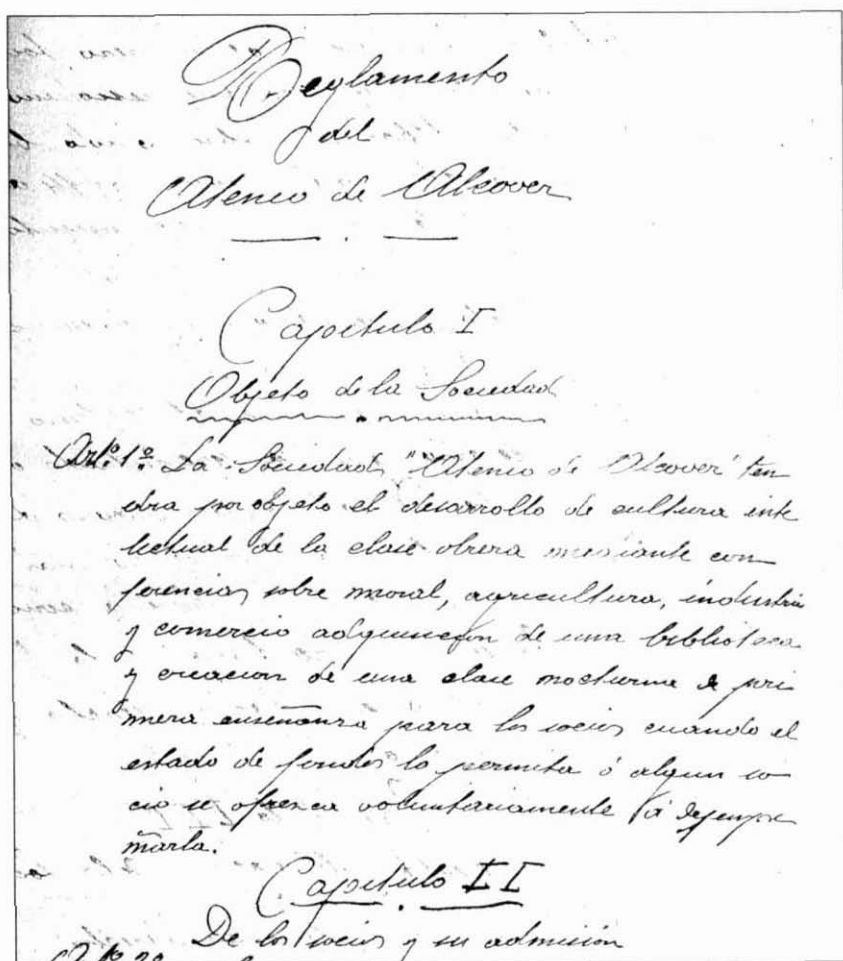 Reglamento
del
Ateneo de Alcover
Capitulo I
Objeto de la Sociedad
Artº. 1º. La Sociedad "Ateneo de Alcover" ten
dra por objeto el desarrollo de cultura inte
lectual de la clase obrera mediante con
ferencias sobre moral, agricultura, industria
y comercio adquisicion de una biblioteca
y creacion de una clase nocturna de pri
mera enseñanza para los socios cuando el
estado de fondos lo permita ó algun so
cio se ofresca voluntariamente á desempe
ñarla.
Capitulo II
De los socios y su admisión